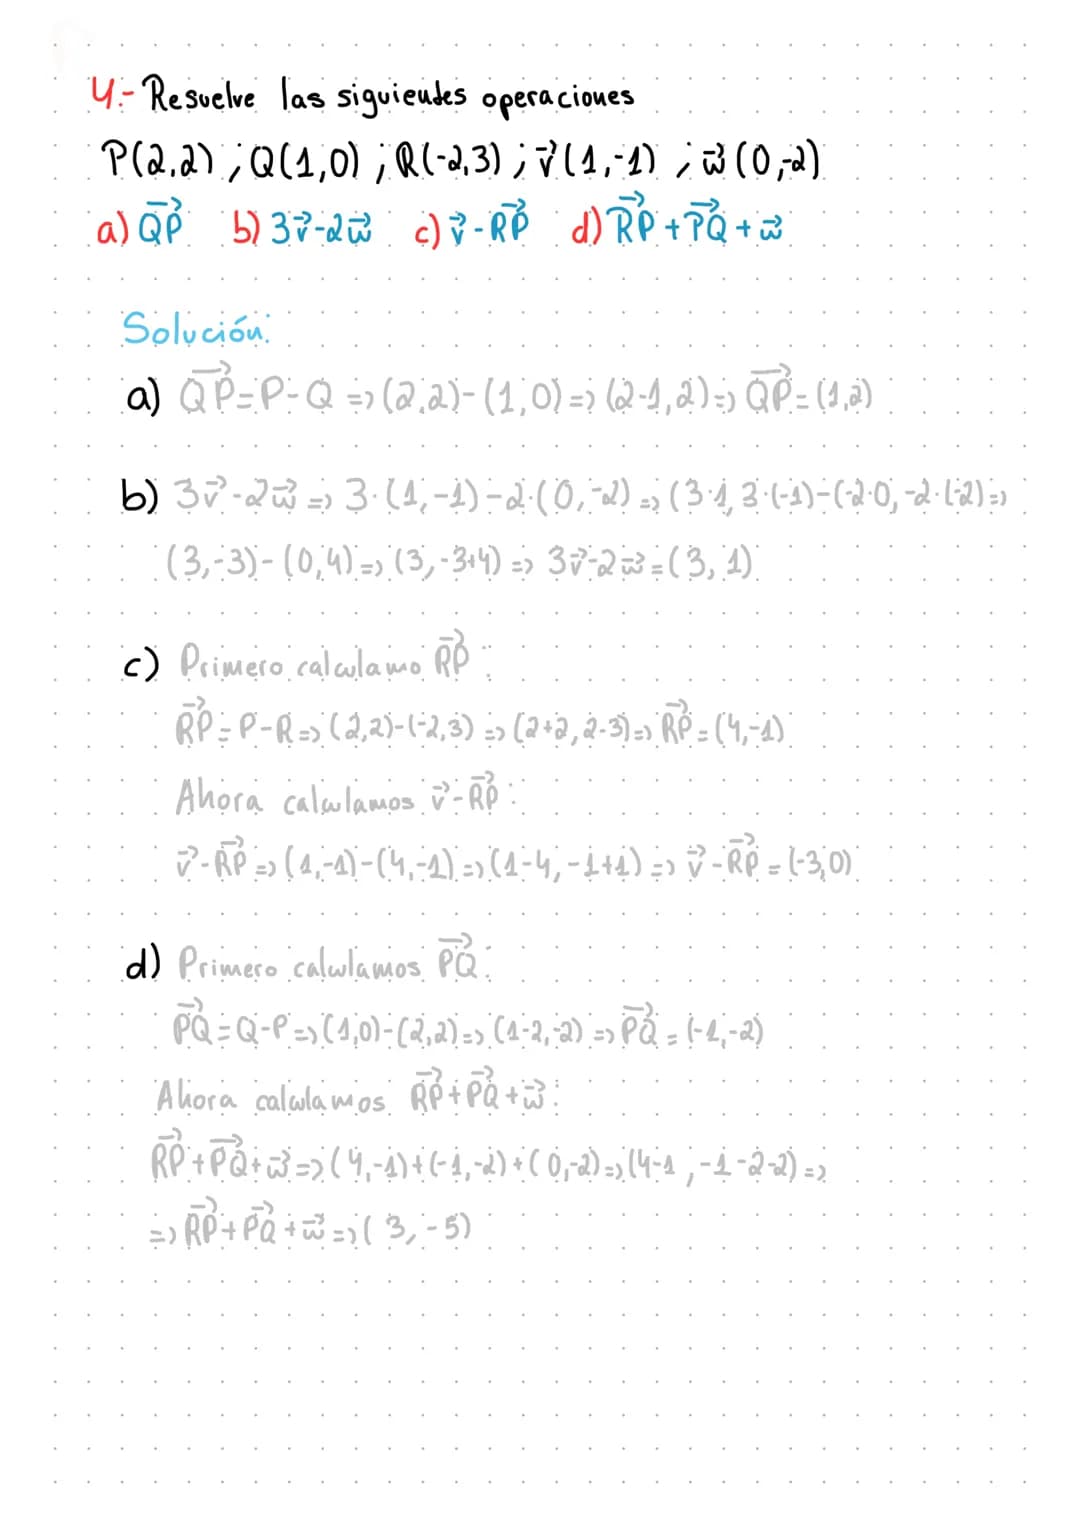 4.- Resuelve las siguientes operaciones
P(2,2) ; Q(1,0) ; R(-2,3) ; v⃗(1,-1) ; w⃗(0,-2)
a) QP⃗ b) 3v⃗-2w⃗ c) v⃗-RP⃗ d) RP⃗+PQ⃗+w⃗
Solución:
a) QP⃗=P-Q => (2,2)-(1,0) => (2-1,2) => QP⃗=(1,2)
b) 3v⃗-2w⃗ => 3·(1,-1)-2·(0,-2) => (3·1,3·(-1)-(-2·0,-2·(-2) =>
(3,-3)-(0,4) => (3,-3+4) => 3v⃗-2w⃗=(3,1)
c) Primero calculamo RP⃗:
RP⃗=P-R => (2,2)-(-2,3) => (2+2,2-3) => RP⃗=(4,-1)
Ahora calculamos v⃗-RP⃗:
v⃗-RP⃗ => (1,-1)-(4,-1) => (1-4,-1+1) => v⃗-RP⃗=(-3,0)
d) Primero calculamos PQ⃗:
PQ⃗=Q-P => (1,0)-(2,2) => (1-2,-2) => PQ⃗=(-1,-2)
Ahora calculamos RP⃗+PQ⃗+w⃗:
RP⃗+PQ⃗+w⃗ => (4,-1)+(-1,-2)+(0,-2) => (4-1,-1-2-2) =>
=> RP⃗+PQ⃗+w⃗ => (3,-5)